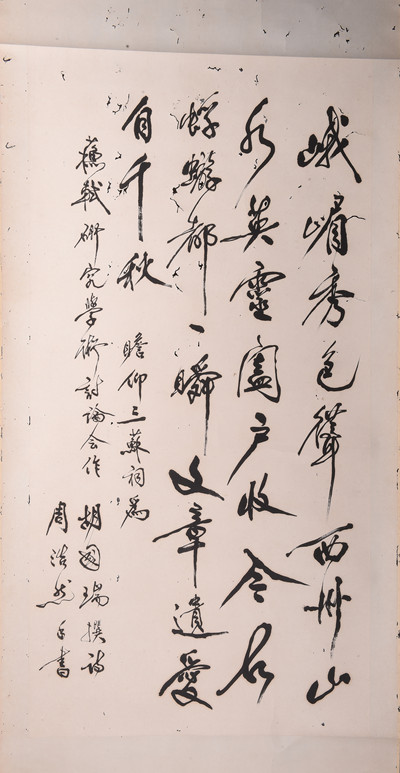 峨嵋秀色聳西州山
水英靈闔户收今古
蜉蝣都一瞬文章遺愛
自千秋 瞻仰三蘇祠為
蘇軾研究學術討論会作
胡國瑞撰詩
周浩然手書